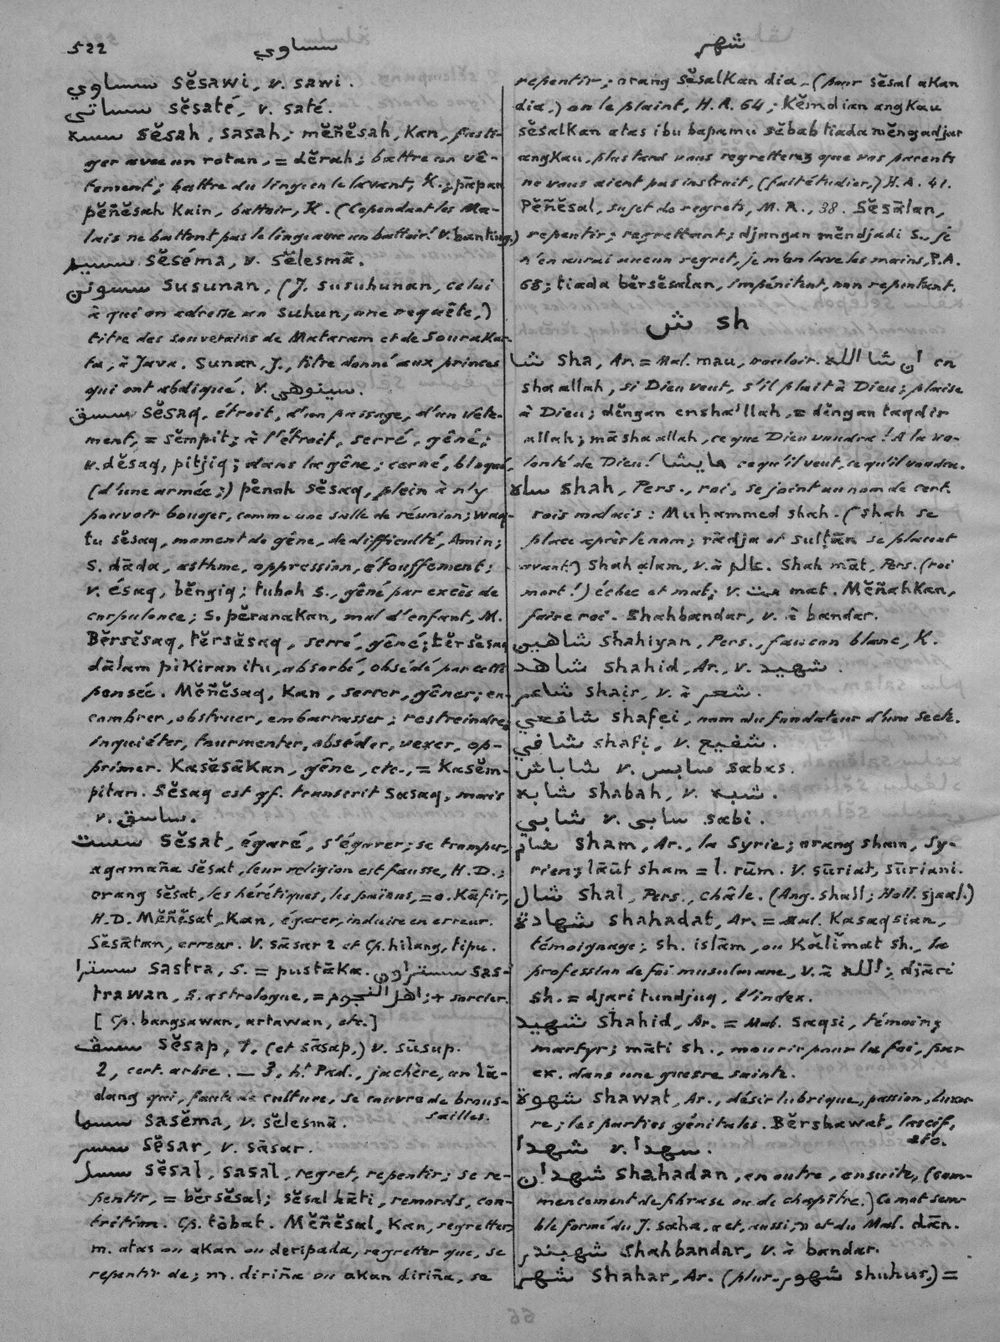 522 سساوي شهر
سساوي sĕsawi, v. sawi.
سساتي sĕsaté, v. saté.
سسه sĕsah, sasah; mĕñĕsah, kan, fusti-
ger avec un rotan, = dĕrah; battre un vê-
tement; battre du linge en le lavant, K.; pāpan
pĕñĕsah kain, battoir, K. (Cependant les Ma-
lais ne battent pas le linge avec un battoir! v. banting.)
سسيم sĕséma, v. sĕlesmā.
سسونن susunan, (J. susuhunan, celui
à qui on adresse un suhun, une requête,)
titre des souverains de Mataram et de Sourakar-
ta, à Java. Sunan, J., titre donné aux princes
qui ont abdiqué. v. سينوهي.
سسق sĕsaq, étroit, d'un passage, d'un vête-
ment, = sĕmpit; à l'étroit, serré, gêné;
v. dĕsaq, pitjiq; dans la gêne; cerné, bloqué,
(d'une armée;) pĕnoh sĕsaq, plein à n'y
pouvoir bouger, comme une salle de réunion; waq-
tu sĕsaq, moment de gêne, de difficulté, Amin;
s. dāda, asthme, oppression, étouffement;
v. ésaq, bĕngiq; tuboh s., gêné par excès de
corpulence; s. pĕranakan, mal d'enfant, M.
Bĕrsĕsaq, tĕrsĕsaq, serré, gêné; tĕrsĕsaq
dālam pikiran itu, absorbé, obsédé par cette
pensée. Mĕñĕsaq, kan, serrer, gêner; en-
combrer, obstruer, embarrasser; restreindre;
inquiéter, tourmenter, obséder, vexer, op-
primer. Kasĕsākan, gêne, etc., = kasĕm-
pitan. Sĕsaq est qf. transcrit sasaq, mais
v. ساسق.
سست sĕsat, égaré, s'égarer; se tromper,
agamaña sĕsat, leur religion est fausse, H.D.;
orang sĕsat, les hérétiques, les païens, = o. kāfir,
H.D. Mĕñĕsat, kan, égarer, induire en erreur.
Sĕsātan, erreur. V. sāsar 2 et Cp. hilang, tipu.
سسترا sastra, S. = pustāka. سستراون sas-
trawan, S. astrologue, = اهل النجوم; + sorcier.
[Cp. bangsawan, artawan, etc.]
سسڤ sĕsap, 1, (et sāsap,) v. sūsup.
2, cert. arbre. — 3, ht Pad., jachère, un lā-
dang qui, faute de culture, se couvre de brous-
sailles.
سسما sasĕma, v. sĕlesmā.
سسر sĕsar, v. sāsar.
سسل sĕsal, sasal, regret, repentir; se re-
pentir, = bĕrsĕsal; sĕsal hāti, remords, con-
trition. Cp. tobat. Mĕñĕsal, kan, regretter,
m. atas ou akan ou deripada, regretter que, se
repentir de; m. diriña ou akan diriña, se
repentir; orang sĕsalkan dia, (pour sĕsal akan
dia,) on le plaint, H.A. 64; kĕmdian angkau
sĕsalkan atas ibu bapamu sĕbab tiada mĕngadjar
angkau, plus tard vous regretterez que vos parents
ne vous aient pas instruit, (fait étudier,) H.A. 41.
Pĕñĕsal, sujet de regrets, M.R., 38. Sĕsālan,
repentir; regrettant; djangan mĕndjadi s., je
n'en aurai aucun regret, je m'en lave les mains, P.A.
68; tiada bĕrsĕsalan, impénitent, non repentant.
ش sh
شا sha, Ar. = Mal. mau, vouloir. ان شا الله en
sha allah, si Dieu veut, s'il plaît à Dieu; plaise
à Dieu; dĕngan ensha'llah, = dĕngan taqdir
allah; mā sha allah, ce que Dieu voudra! A la vo-
lonté de Dieu! مايشا ce qu'il veut, ce qu'il voudra.
شاه shah, Pers., roi, se joint au nom de cert.
rois malais: Muḥammed shah. (Shah se
place après le nom; rādja et sulṭān se placent
avant.) Shah alam, v. à عالم. Shah māt, Pers. (roi
mort!) échec et mat; v. مت mat. Mĕñahkan,
faire roi. Shahbandar, v. à bandar.
شاهين shahiyan, Pers., faucon blanc, K.
شاهد shahid, Ar., v. شهيد.
شاعر shaịr, v. à شعر.
شافعي shafeị, nom du fondateur d'une secte.
شافي shafi, v. شفيع.
شاباش v. سابس sabas.
شابه shabah, v. شبه.
شابي v. سابي sabi.
شام sham, Ar., la Syrie; orang sham, Sy-
rien; lāūt sham = l. rūm. V. sūriat, sūriani.
شال shal, Pers., châle. (Ang. shall; Holl. sjaal.)
شهادة shahadat, Ar. = Mal. kasaqsian,
témoignage; sh. islām, ou kālĭmat sh., la
profession de foi musulmane, v. à الله; djāri
sh. = djari tundjuq, l'index.
شهيد shahid, Ar. = Mal. saqsi, témoin;
martyr; māti sh., mourir pour la foi, par
ex. dans une guerre sainte.
شهوة shawat, Ar., désir lubrique, passion, luxu-
re; les parties génitales. Bĕrshawat, lascif,
etc.
شهدا v. سهدا.
شهدان shahadan, en outre, ensuite, (com-
mencement de phrase ou de chapître.) Ce mot sem-
ble formé du J. saha, « et, aussi, » et du Mal. dān.
شهبندر shahbandar, v. à bandar.
شهر shahar, Ar. (plur. شهور shuhur,) =